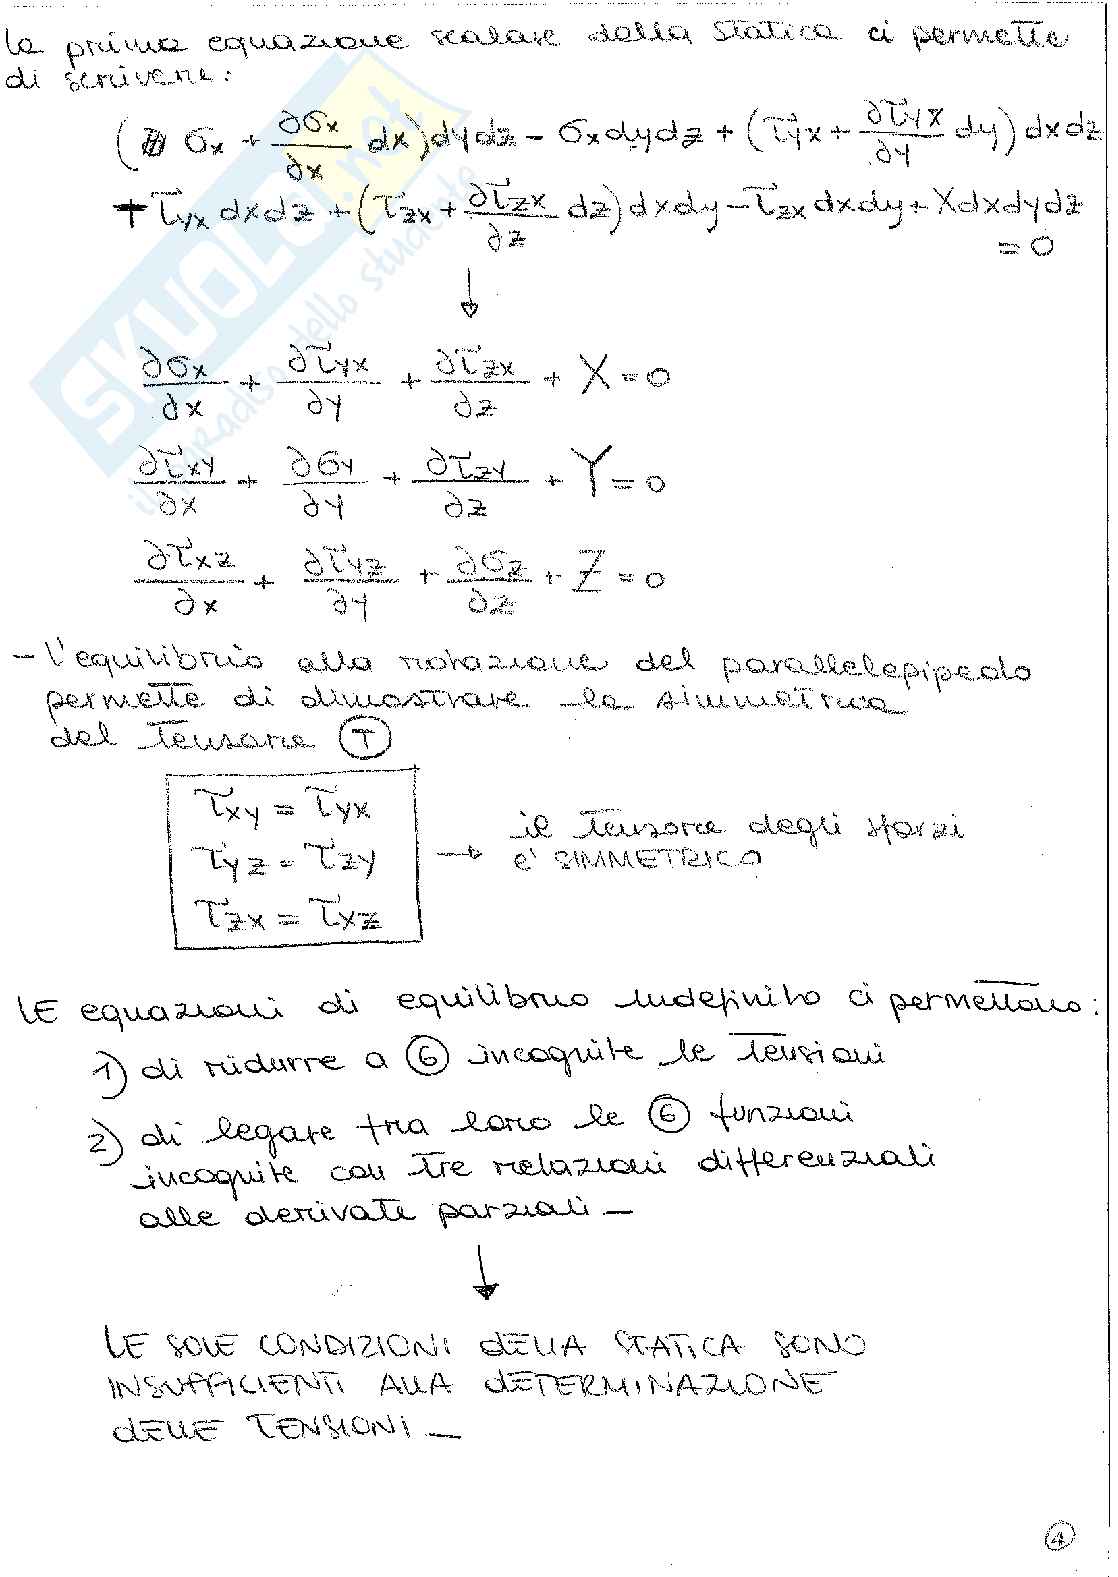 La prima equazione scalare della statica ci permette
di scrivere:
( σx + ∂σx/∂x dx)dydz - σxdydz + (τyx + ∂τyx/∂y dy)dxdz
+ τyx dxdz + (τzx + ∂τzx/∂z dz)dxdy - τzx dxdy + Xdxdydz
= 0
↓
∂σx/∂x + ∂τyx/∂y + ∂τzx/∂z + X = 0
∂τxy/∂x + ∂σy/∂y + ∂τzy/∂z + Y = 0
∂τxz/∂x + ∂τyz/∂y + ∂σz/∂z + Z = 0
- L'equilibrio alla rotazione del parallelepipedo
permette di dimostrare la simmetria
del tensore T
τxy = τyx
τyz = τzy
τzx = τxz
→ il tensore degli sforzi
e' SIMMETRICO
LE equazioni di equilibrio indefinito ci permettono:
1) di ridurre a 6 incognite le tensioni
2) di legare tra loro le 6 funzioni
incognite con tre relazioni differenziali
alle derivate parziali -
↓
LE SOLE CONDIZIONI DELLA STATICA SONO
INSUFFICIENTI ALLA DETERMINAZIONE
DELLE TENSIONI -
4
SKUOLA.net
il paradiso dello studente